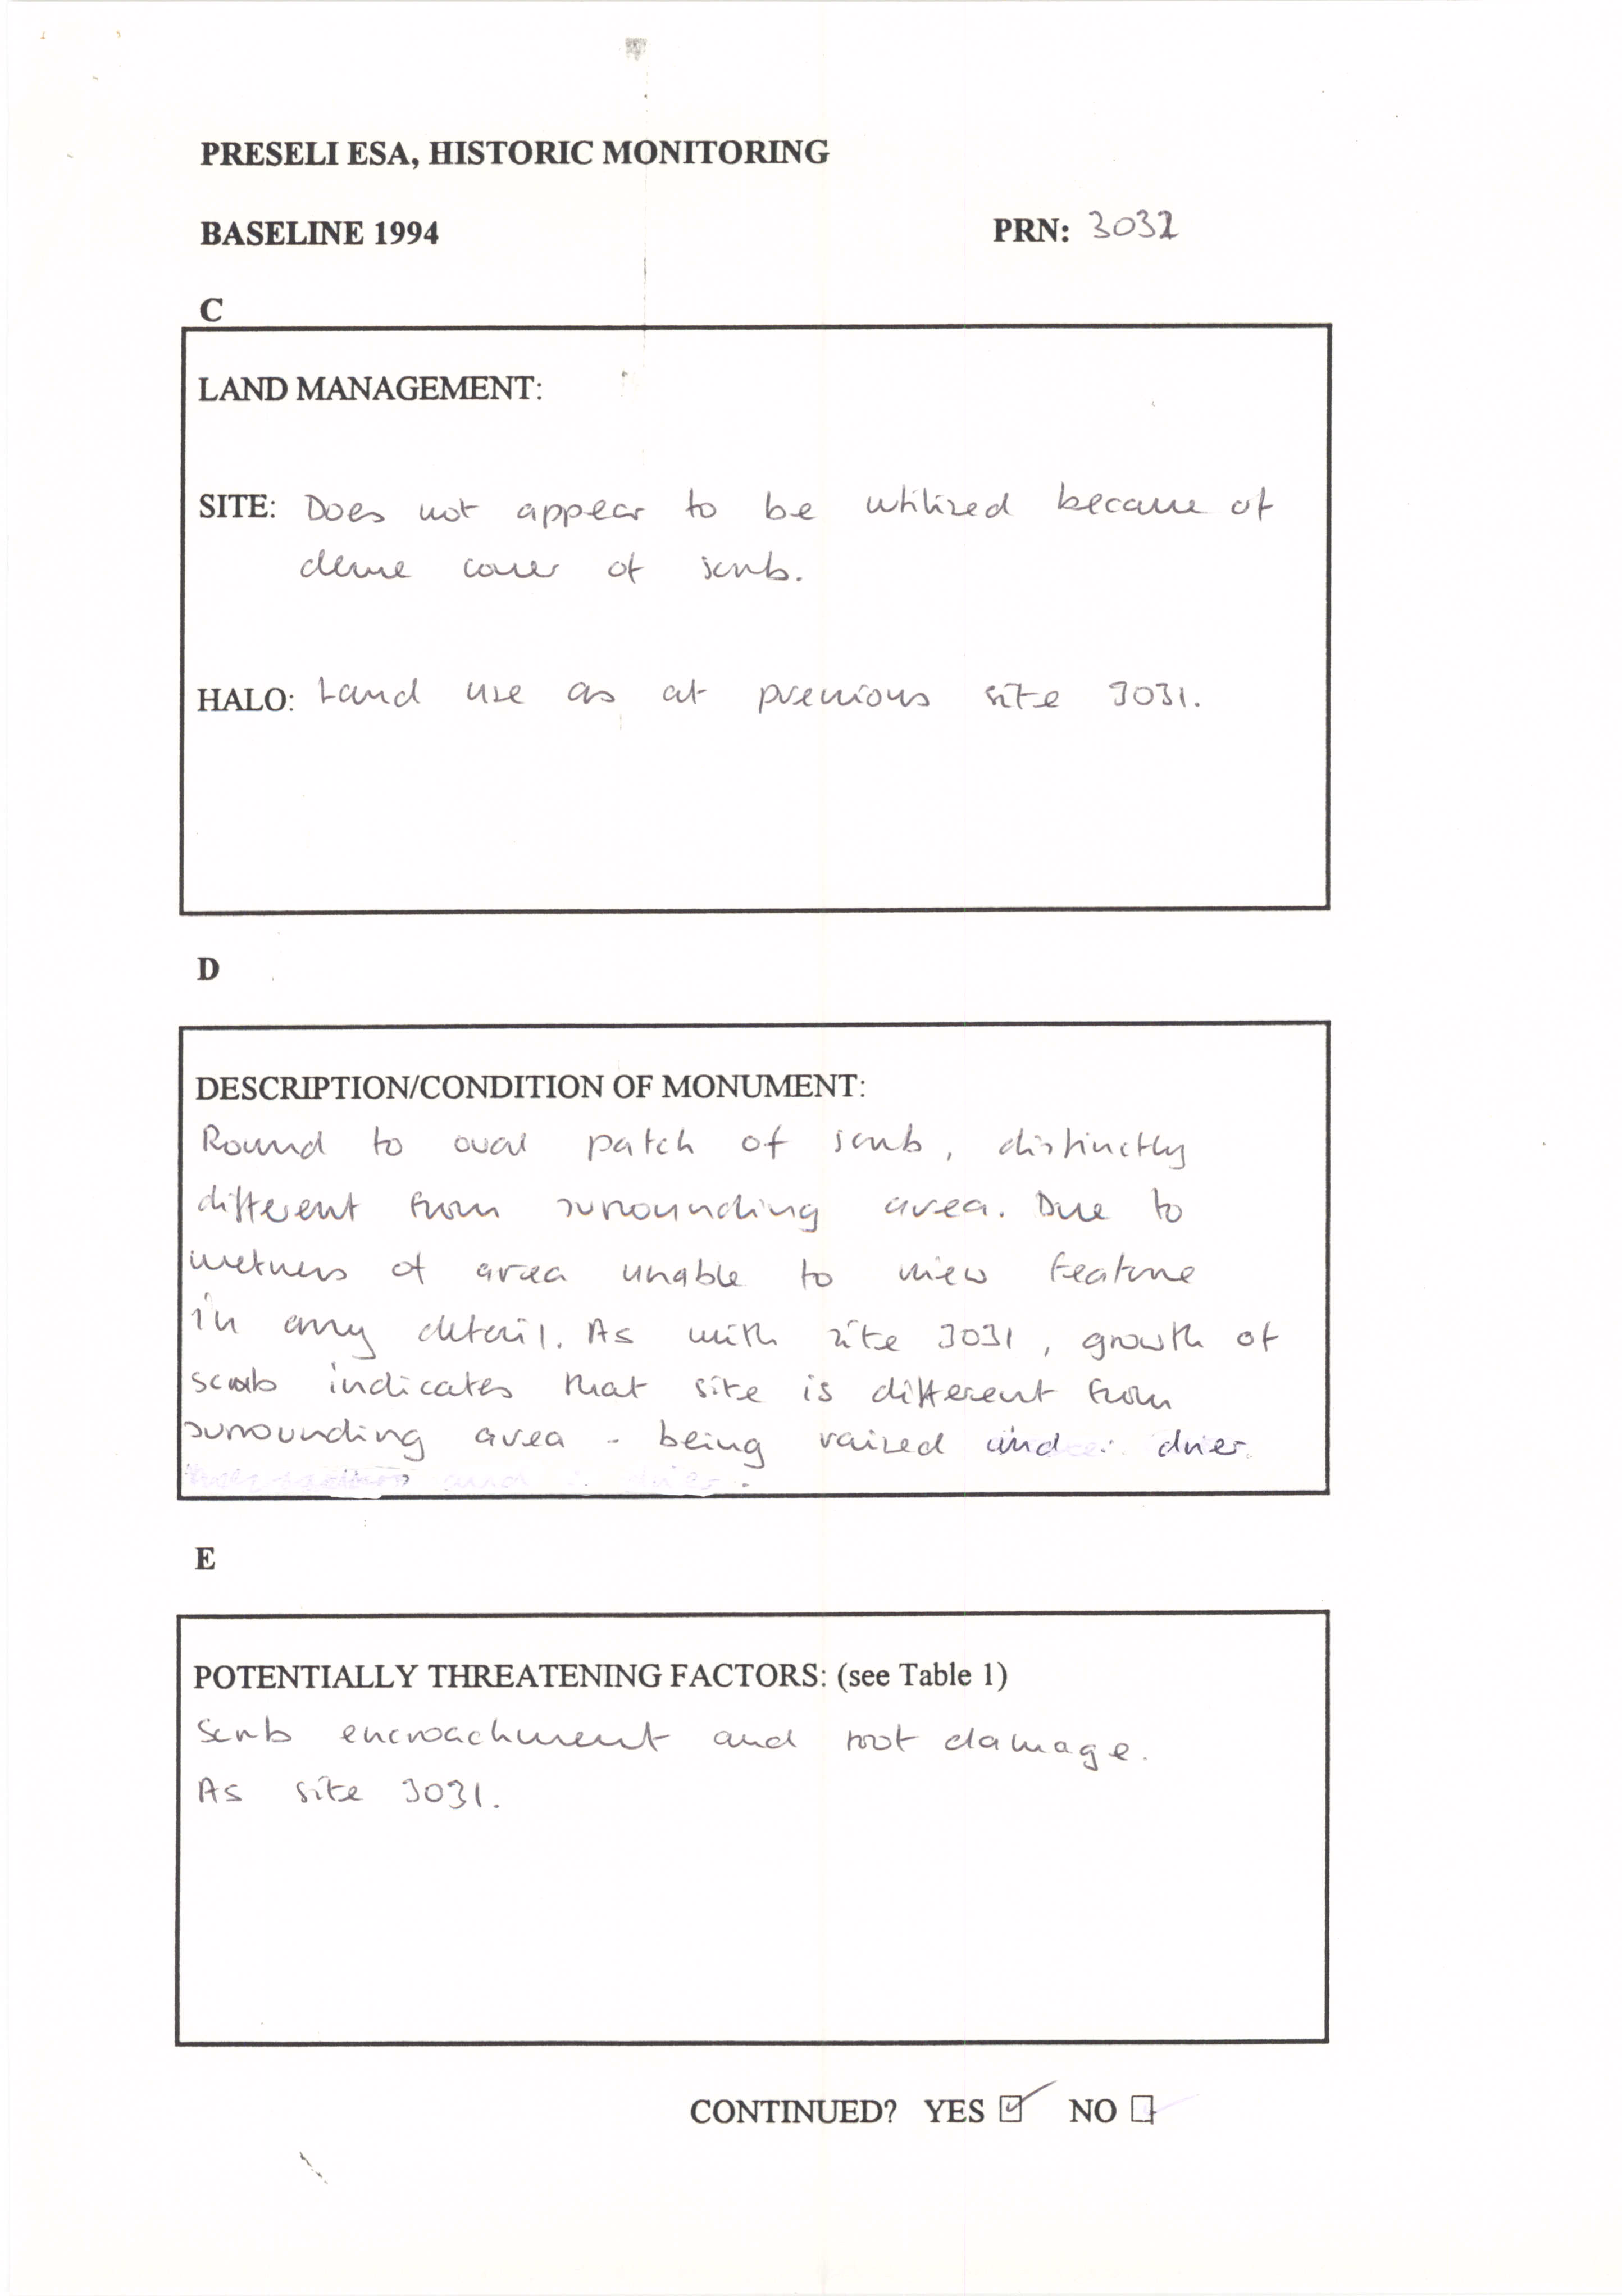 PRESELI ESA, HISTORIC MONITORING
BASELINE 1994 PRN: 3032
C
LAND MANAGEMENT:
SITE: Does not appear to be utilized because of
dense cover of scrub.
HALO: Land use as at previous site 3031.
D
DESCRIPTION/CONDITION OF MONUMENT:
Round to oval patch of scrub, distinctly
different from surrounding area. Due to
wetness of area unable to view feature
in any detail. As with site 3031, growth of
scrub indicates that site is different from
surrounding area - being raised and drier.
E
POTENTIALLY THREATENING FACTORS: (see Table 1)
Scrub encroachment and root damage.
As site 3031.
CONTINUED? YES ☑ NO ☐